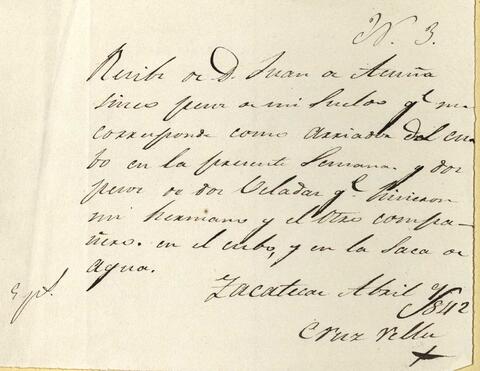 N. 3.
Recibi de D. Juan de Acuña
sinco pesos de mi Sueldo q.e me
corresponde como Arriador del cu-
bo en la presente Semana y dos
pesos de dos Veladas q.e hicieron
mi hermano y el otro compa-
ñero. en el cubo, y en la Saca de
agua.
Zacatecas Abril 1842
Cruz
+